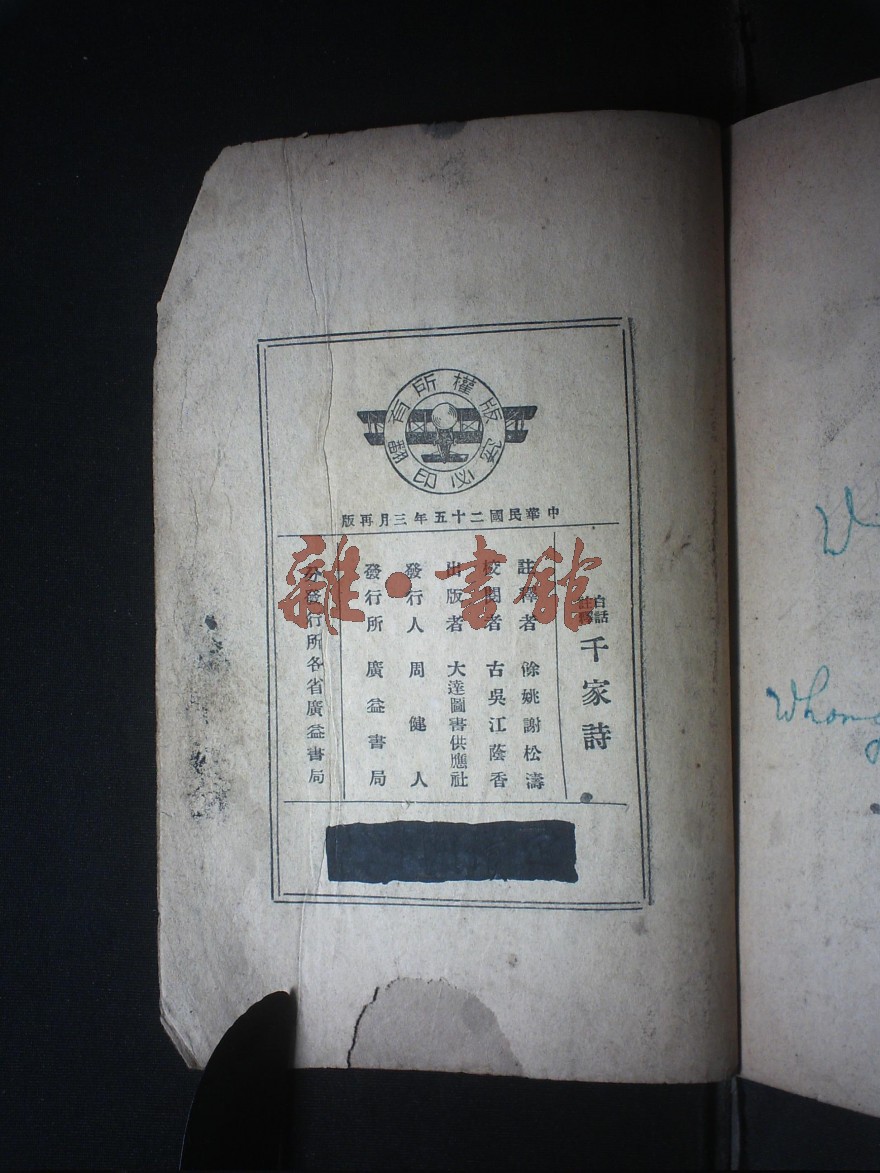 版權所有
翻印必究
中華民國二十五年三月再版
白話註釋 千家詩
註釋者 餘姚謝松濤
校閱者 古吳江蔭香
出版者 大達圖書供應社
發行人 周健人
發行所 廣益書局
分發行所各省廣益書局
雜·書館